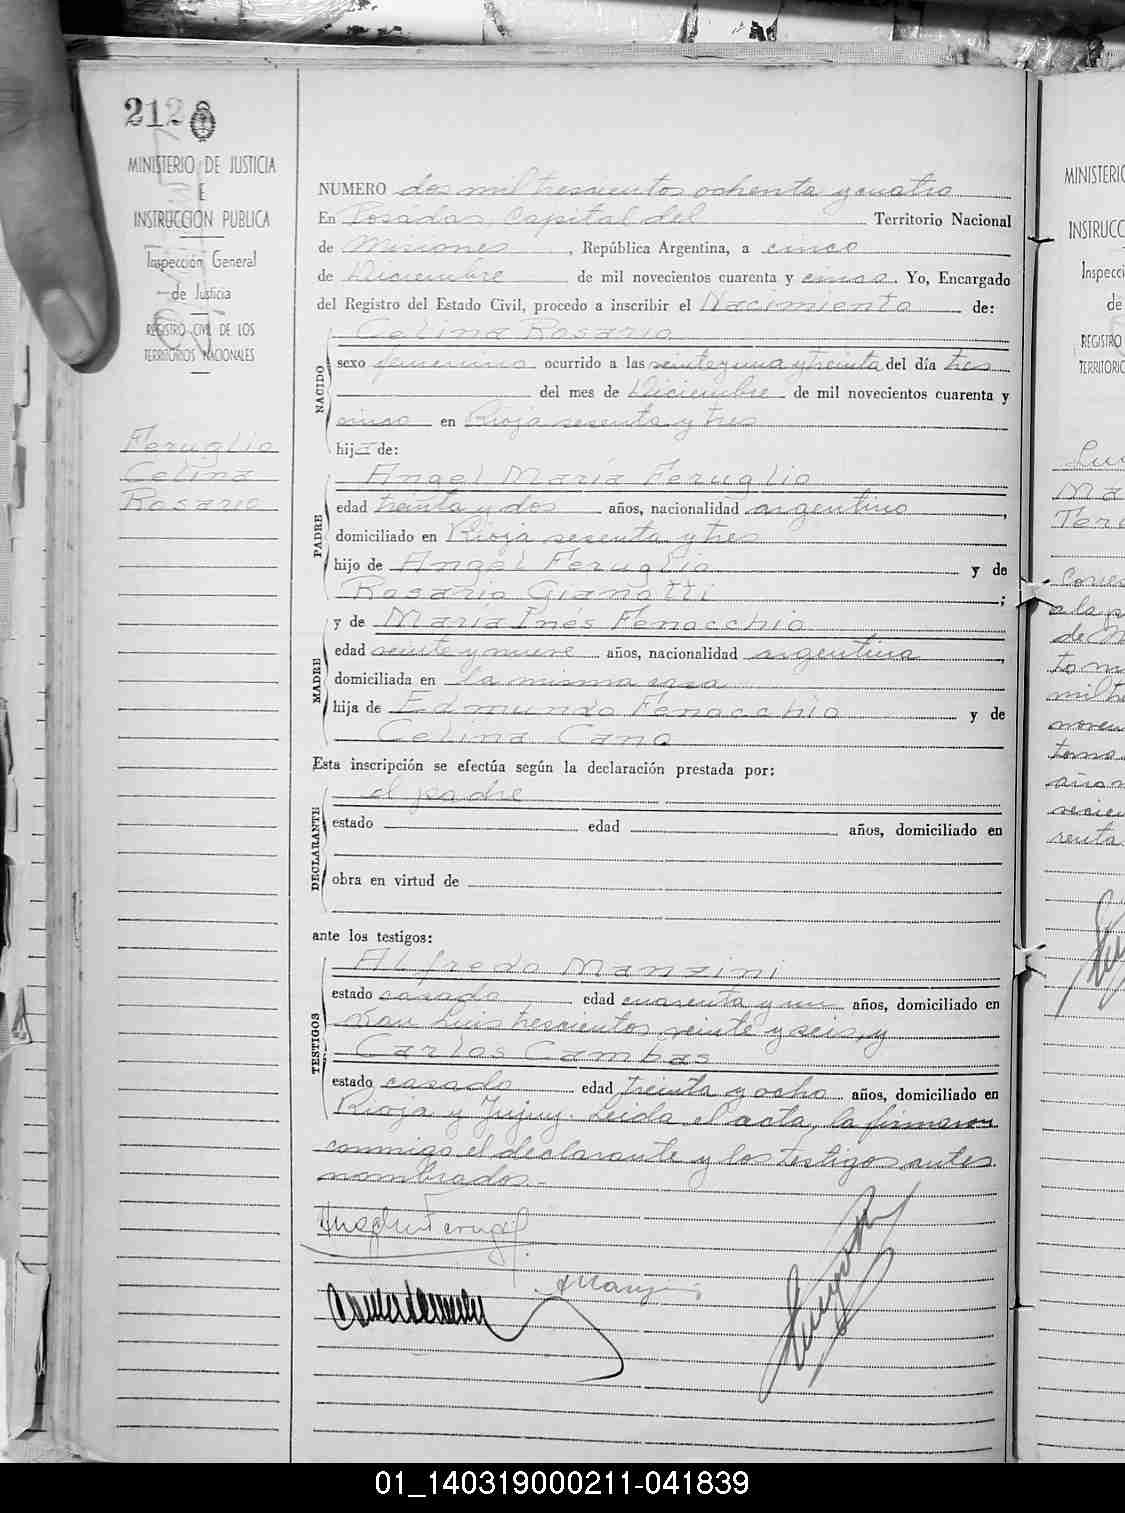 212
MINISTERIO DE JUSTICIA
E
INSTRUCCIÓN PUBLICA
Inspección General
de Justicia
REGISTRO CIVIL DE LOS
TERRITORIOS NACIONALES
Feruglio
Celina
Rosario
NUMERO dos mil trescientos ochenta y cuatro
En Posadas, Capital del Territorio Nacional
de Misiones, República Argentina, a cinco
de Diciembre de mil novecientos cuarenta y cinco. Yo, Encargado
del Registro del Estado Civil, procedo a inscribir el Nacimiento de:
NACIDO
Celina Rosario
sexo femenino ocurrido a las veintiuna y treinta del día tres
del mes de Diciembre de mil novecientos cuarenta y
cinco en Rioja sesenta y tres
hija de:
PADRE
Angel María Feruglio
edad treinta y dos años, nacionalidad argentino,
domiciliado en Rioja sesenta y tres
hijo de Angel Feruglio y de
Rosario Gianotti;
MADRE
y de María Inés Fenocchio
edad veinte y nueve años, nacionalidad argentina,
domiciliada en la misma casa
hija de Edmundo Fenocchio y de
Celina Cano
Esta inscripción se efectúa según la declaración prestada por:
DECLARANTE
el padre
estado edad años, domiciliado en
obra en virtud de
ante los testigos:
TESTIGOS
Alfredo Manzini
estado casado edad cuarenta y un años, domiciliado en
San Luis trescientos veinte y seis, y
Carlos Cambas
estado casado edad treinta y ocho años, domiciliado en
Rioja y Jujuy. Leida el acta, la firmaron
conmigo el declarante y los testigos antes
nombrados.-
MINISTERIO
INSTRUCC
Inspecci
de
REGISTRO
TERRITORIO
01_140319000211-041839